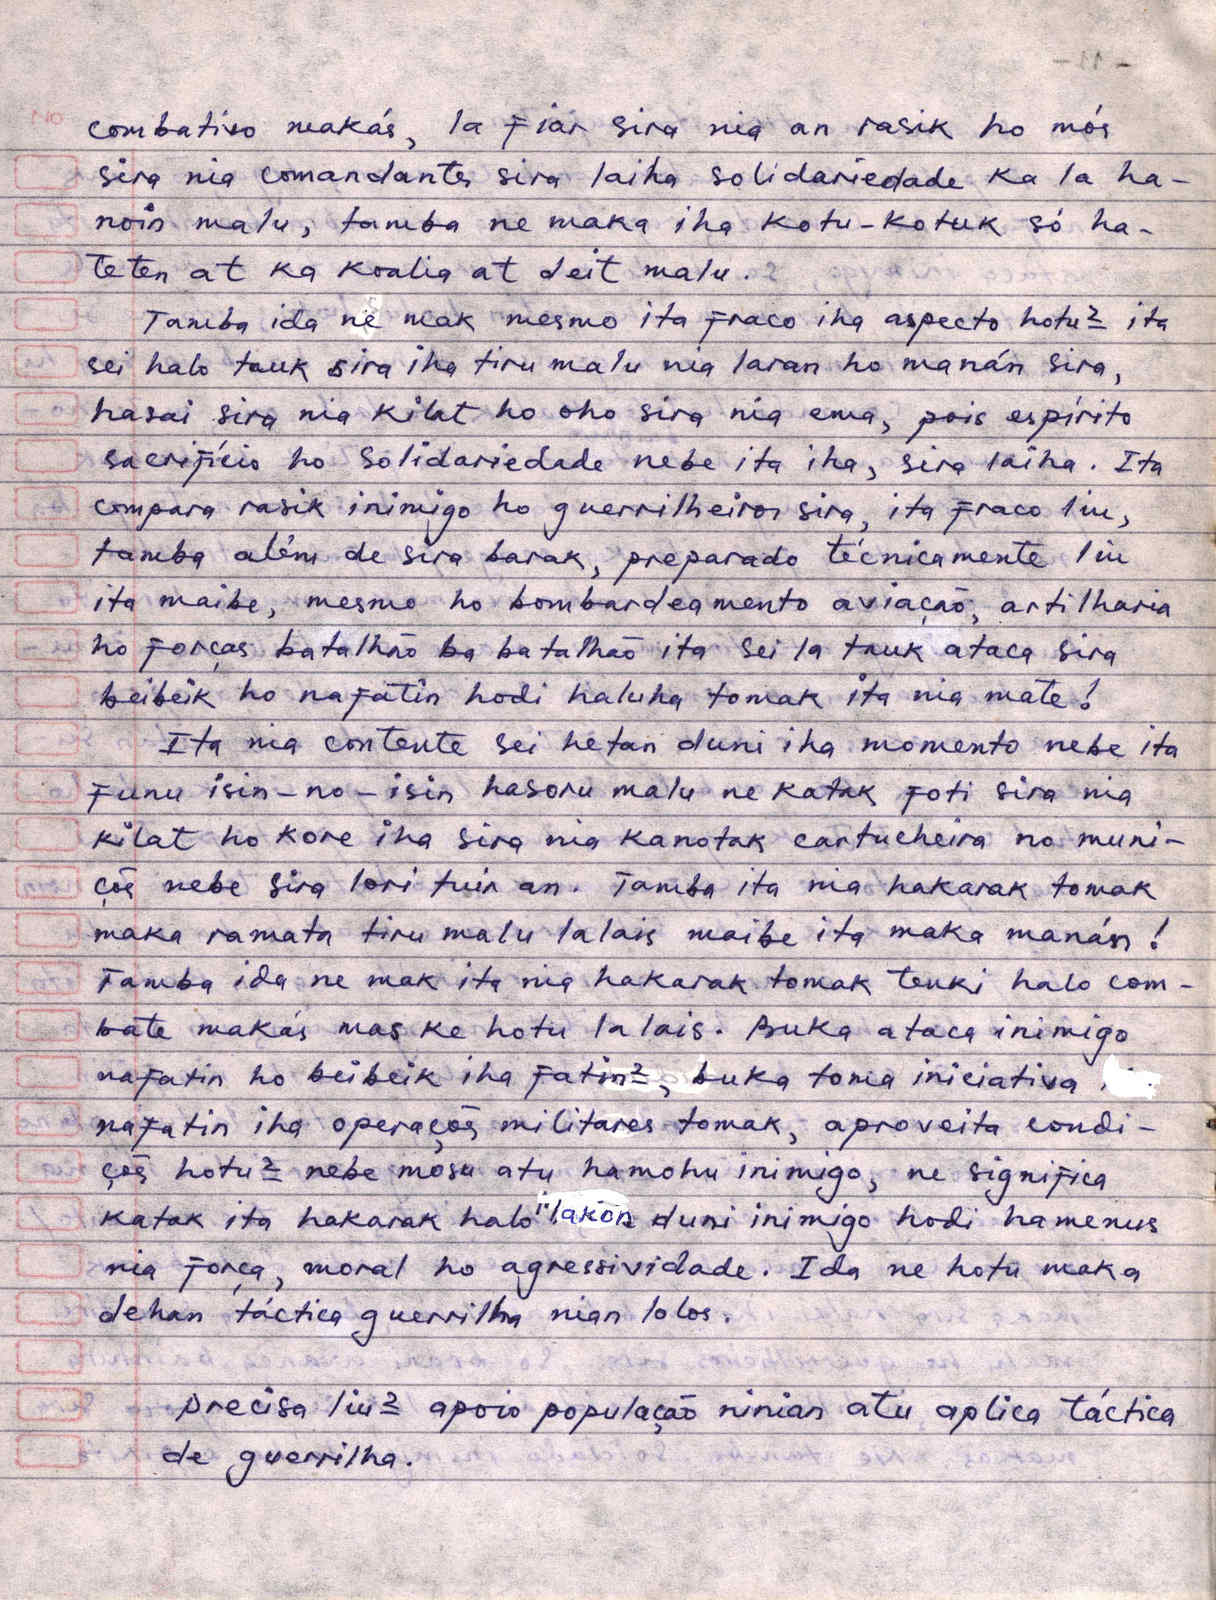 - 11 -
combativo makás, la fiar sira nia an rasik ho mós
sira nia comandantes sira laiha solidariedade ka la ha-
noin malu, tamba ne maka iha kotu-kotuk só ha-
teten at ka koalia at deit malu.
Tamba ida ne mak mesmo ita fraco iha aspecto hotu² ita
sei halo tauk sira iha tiru malu nia laran ho manán sira,
hasai sira nia kilat ho oho sira nia ema, pois espírito
sacrifício ho solidariedade nebe ita iha, sira laiha. Ita
compara rasik inimigo ho guerrilheiros sira, ita fraco liu,
tamba além de sira barak, preparado técnicamente liu
ita maibe, mesmo ho bombardeamento aviação, artilharia
ho forças batalhão ba batalhão ita sei la tauk ataca sira
beibeik ho nafatin hodi haluha tomak ita nia mate!
Ita nia contente sei hetan duni iha momento nebe ita
funu isin-no-isin hasoru malu ne katak foti sira nia
kilat ho kore iha sira nia kanotak cartucheira no muni-
çõs nebe sira lori tuir an. Tamba ita nia hakarak tomak
maka ramata tiru malu lalais maibe ita maka manán!
Tamba ida ne mak ita nia hakarak tomak tenki halo com-
bate makás mas ke hotu lalais. Buka ataca inimigo
nafatin ho beibeik iha fatin², buka toma iniciativa
nafatin iha operaçõs militares tomak, aproveita condi-
çõs hotu² nebe mosu atu hamohu inimigo, ne significa
katak ita hakarak halo "lakon duni inimigo hodi hamenus
nia força, moral ho agressividade. Ida ne hotu maka
dehan táctica guerrilha nian lolos.
Precisa liu² apoio população ninian atu aplica táctica
de guerrilha.